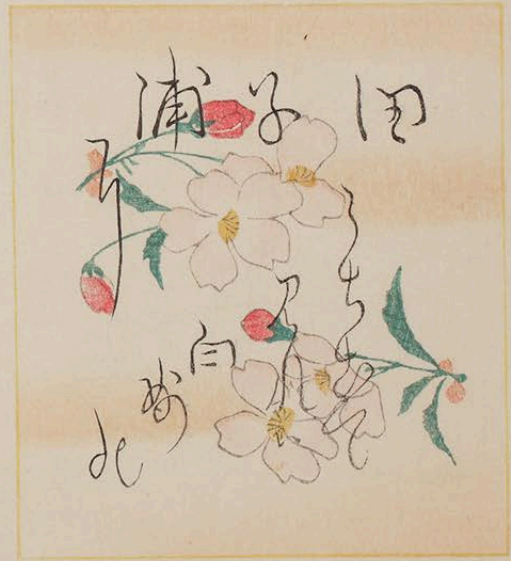 田子浦
耳
うち出て
みれは
白
妙
能